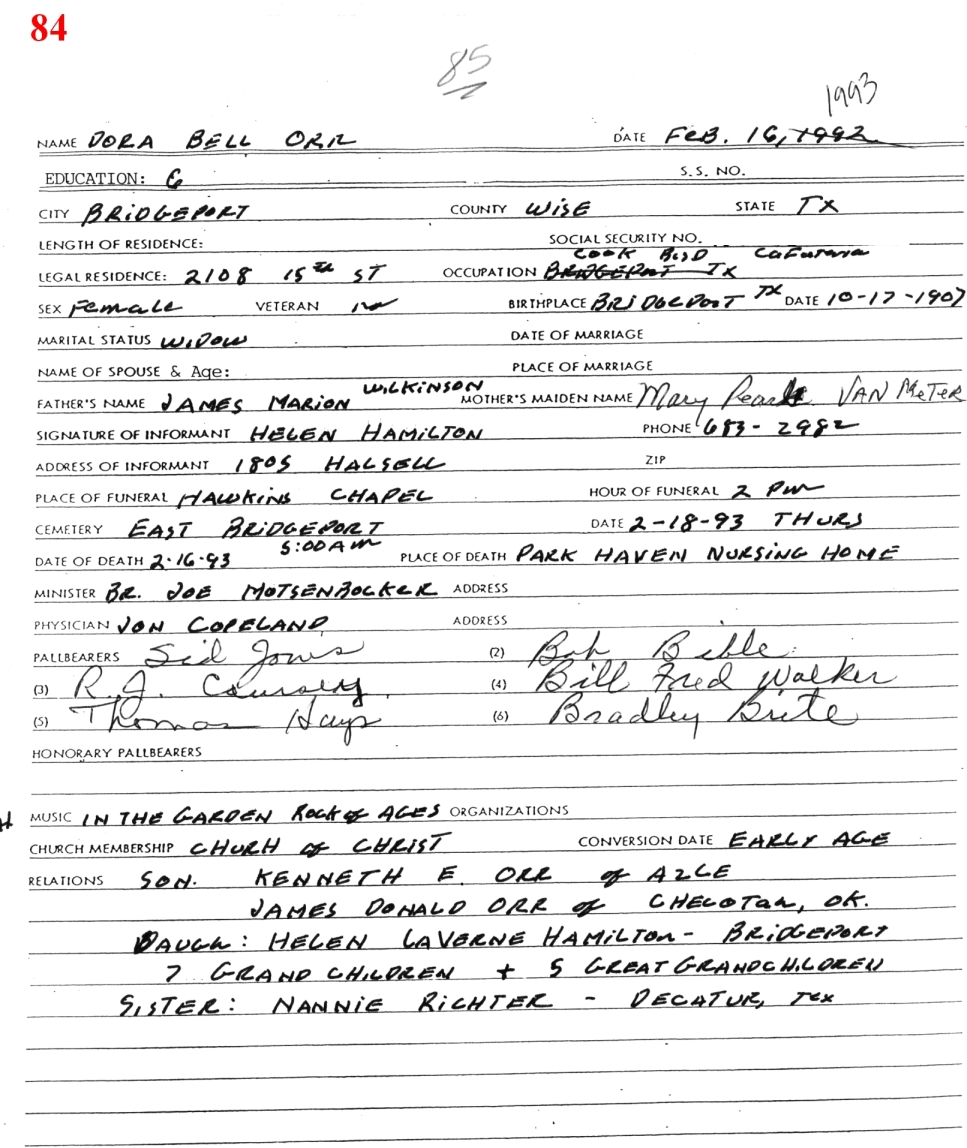 84
85
1993
NAME DORA BELL ORR DATE FEB. 16, 1992
EDUCATION: 6 S.S. NO.
CITY BRIDGEPORT COUNTY WISE STATE TX
LENGTH OF RESIDENCE: SOCIAL SECURITY NO.
COOK BISD CAFATERIA
LEGAL RESIDENCE: 2108 15TH ST OCCUPATION BRIDGEPORT TX
SEX FEMALE VETERAN NO BIRTHPLACE BRIDGEPORT TX DATE 10-17-1907
MARITAL STATUS WIDOW DATE OF MARRIAGE
NAME OF SPOUSE & Age: PLACE OF MARRIAGE
FATHER'S NAME JAMES MARION WILKINSON MOTHER'S MAIDEN NAME Mary Pearl VAN METER
SIGNATURE OF INFORMANT HELEN HAMILTON PHONE 683-2982
ADDRESS OF INFORMANT 1805 HALSELL ZIP
PLACE OF FUNERAL HAWKINS CHAPEL HOUR OF FUNERAL 2 PM
CEMETERY EAST BRIDGEPORT DATE 2-18-93 THURS
DATE OF DEATH 2-16-93 5:00 AM PLACE OF DEATH PARK HAVEN NURSING HOME
MINISTER BR. JOE MOTSENBOCKER ADDRESS
PHYSICIAN JON COPELAND ADDRESS
PALLBEARERS Sid Jones (2) Bob Bible
(3) R.J. Coursey (4) Bill Fred Walker
(5) Thomas Hays (6) Bradley Brite
HONORARY PALLBEARERS
MUSIC IN THE GARDEN ROCK of AGES ORGANIZATIONS
CHURCH MEMBERSHIP CHURH of CHRIST CONVERSION DATE EARLY AGE
RELATIONS SON. KENNETH E. ORR of AZLE
JAMES DONALD ORR of CHECOTAH, OK.
DAUGH: HELEN LAVERNE HAMILTON - BRIDGEPORT
7 GRAND CHILDREN + 5 GREAT GRANDCHILDREN
SISTER: NANNIE RICHTER - DECATUR, TEX